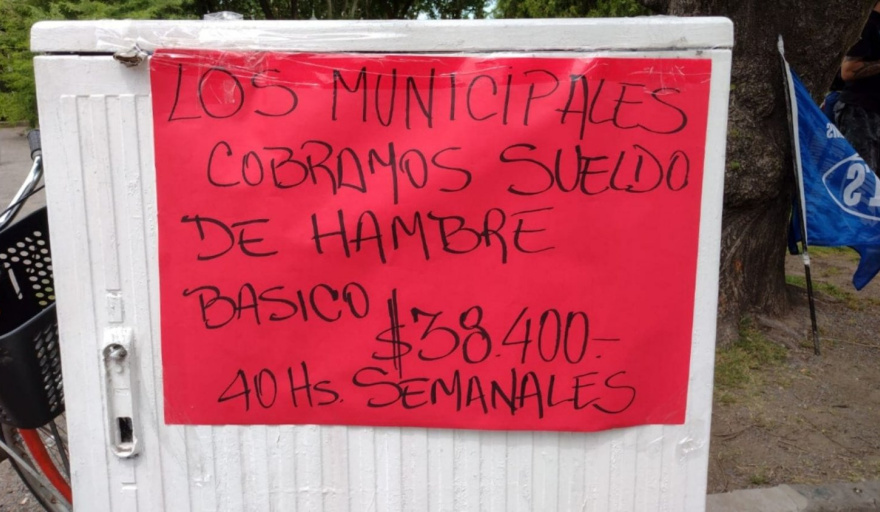 LOS MUNICIPALES
COBRAMOS SUELDO
DE HAMBRE
BASICO $38.400-
40 Hs. SEMANALES